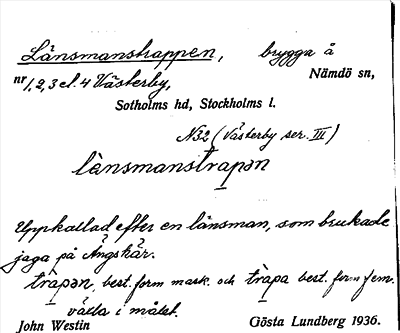 Länsmanstrappen, brygga å
nr 1, 2, 3 el. 4 Västerby, Nämdö sn,
Sotholms hd, Stockholms l.
N32 (Västerby ser. III)
lànsmanstrapən
Uppkallad efter en länsman, som brukade
jaga på Ängskär.
tràpən, best. form mask. och tràpa best. form fem.
växla i målet.
John Westin Gösta Lundberg 1936.